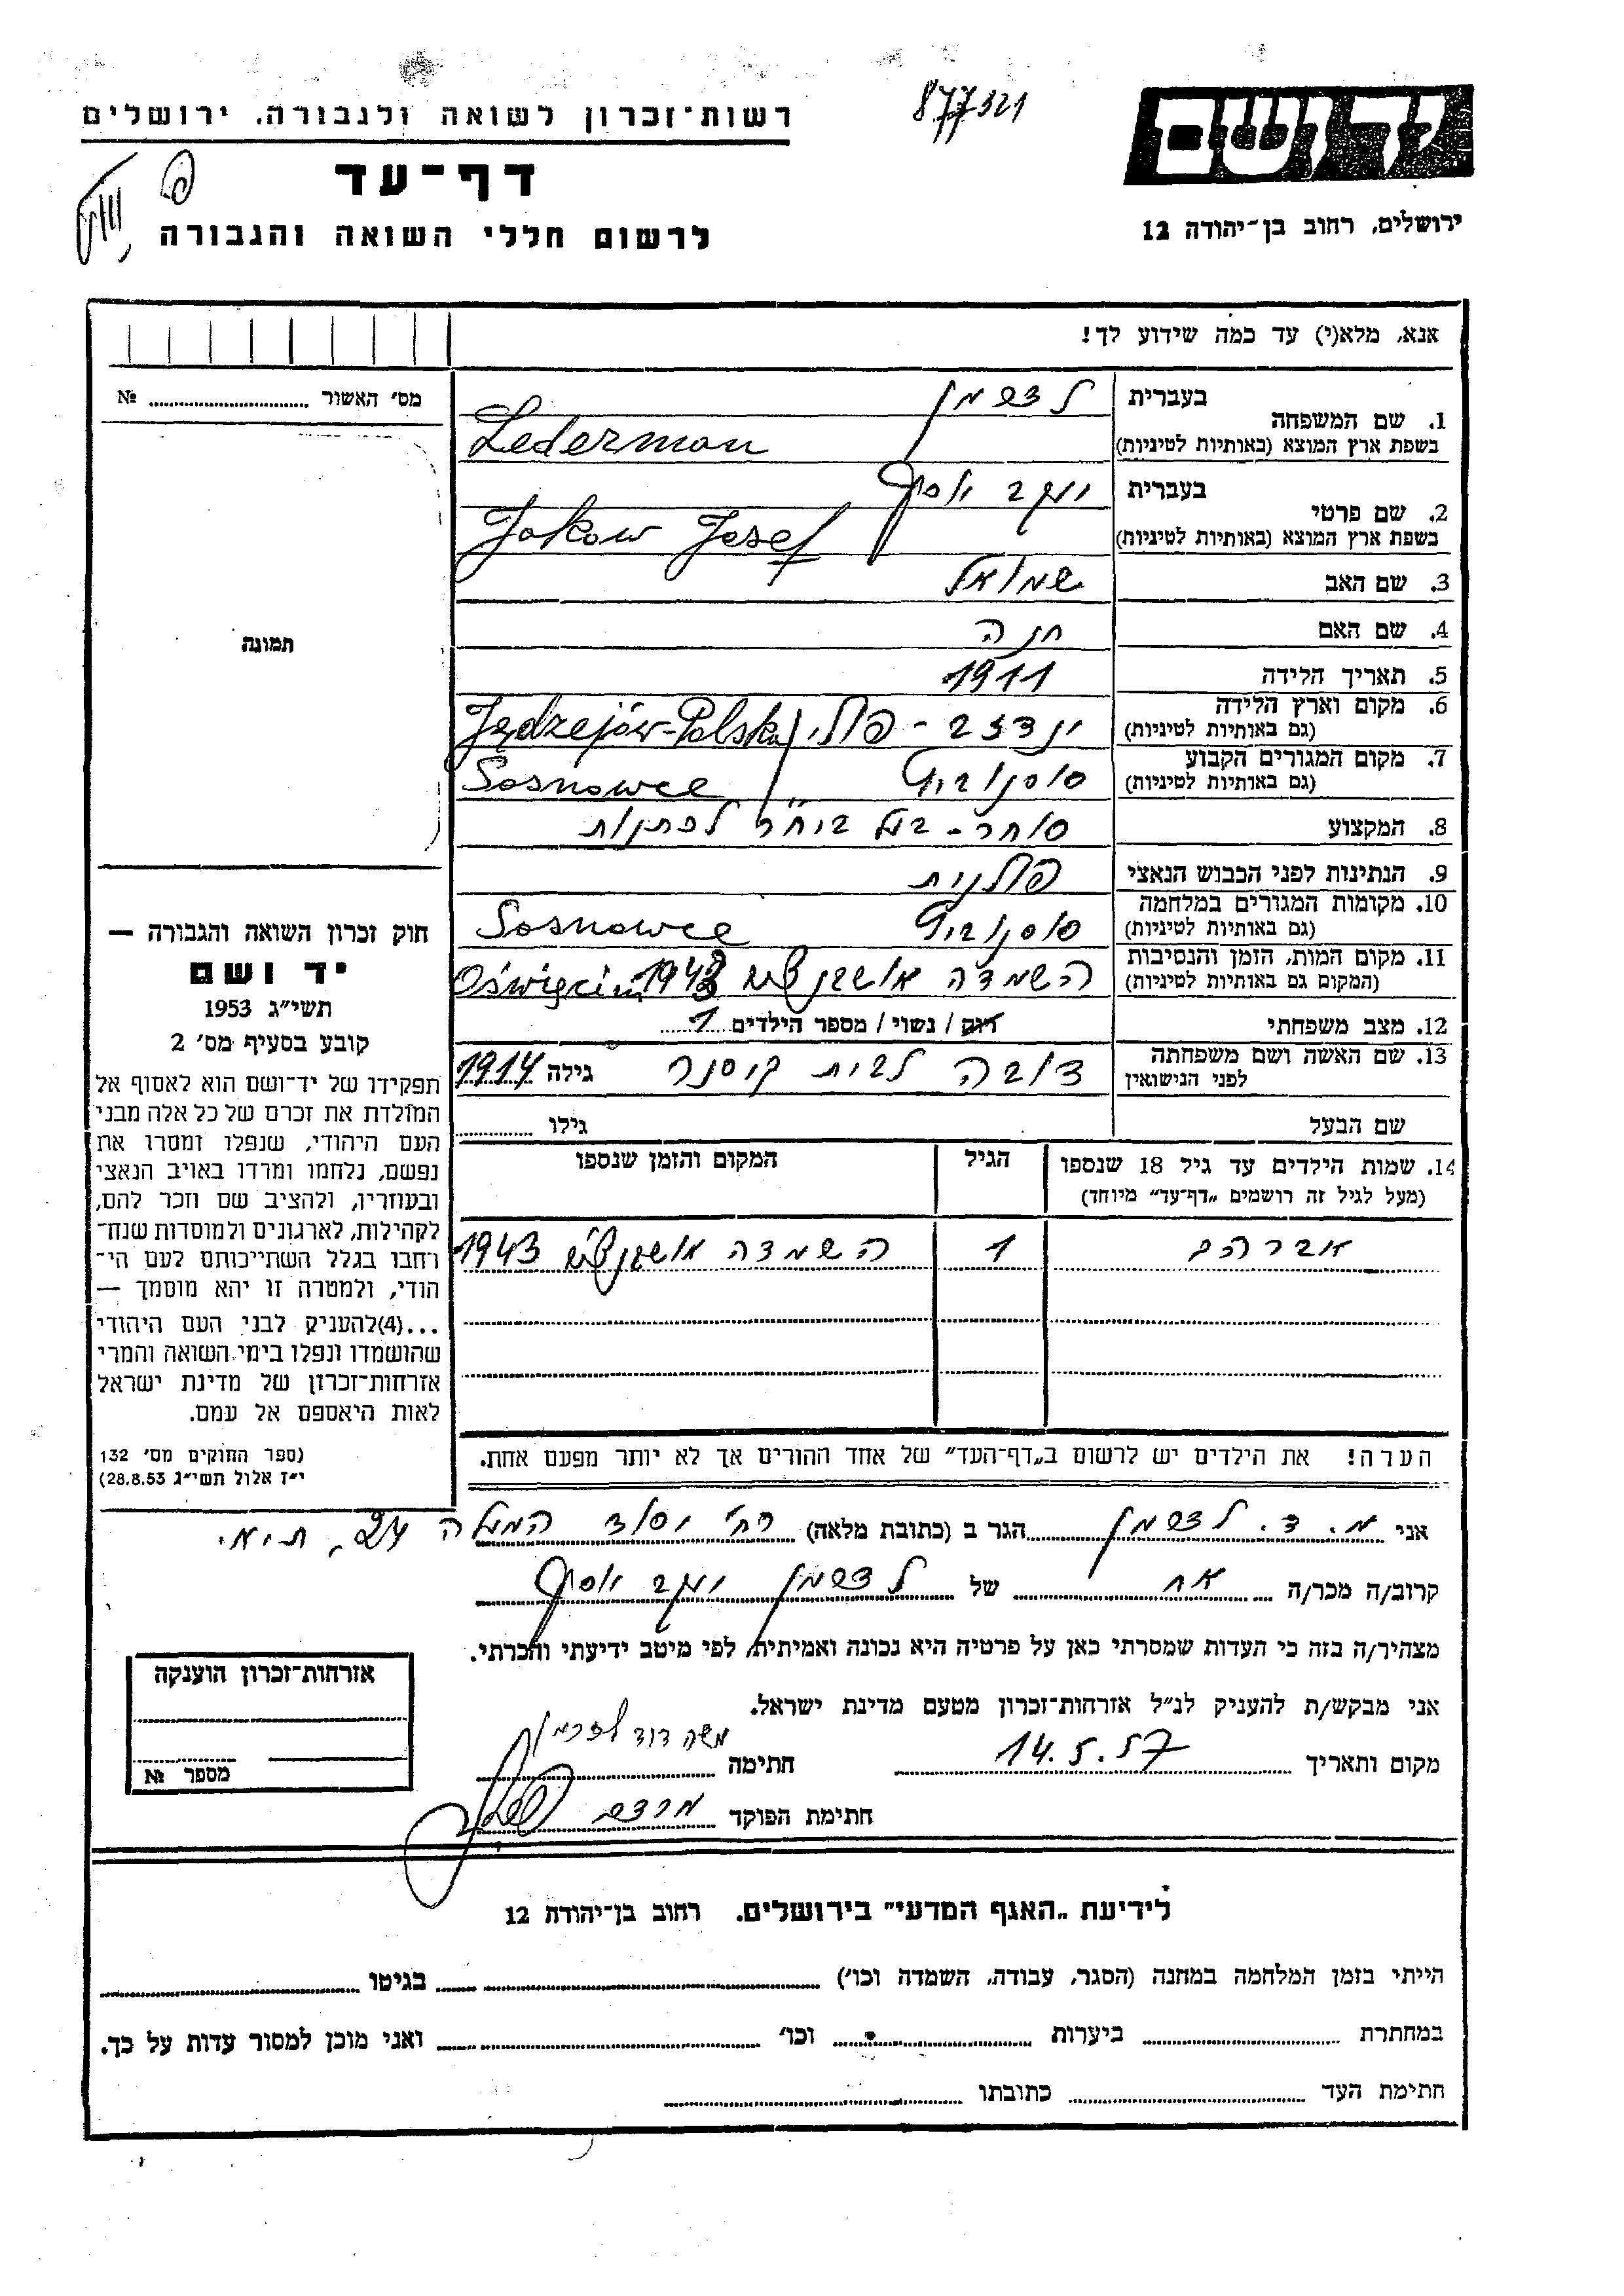 877321
יד ושם
ירושלים, רחוב בן־יהודה 12
רשות־זכרון לשואה ולגבורה, ירושלים
דף־עד
לרשום חללי השואה והגבורה
אנא, מלא(י) עד כמה שידוע לך!
1. שם המשפחה בעברית לדרמן
בשפת ארץ המוצא (באותיות לטיניות) Lederman
2. שם פרטי בעברית יעקב יוסף
בשפת ארץ המוצא (באותיות לטיניות) Jakow Josef
3. שם האב שמואל
4. שם האם חנה
5. תאריך הלידה 1911
6. מקום וארץ הלידה
(גם באותיות לטיניות) פולין Jędzejów-Polska
7. מקום המגורים הקבוע
(גם באותיות לטיניות) סוסנוביץ Sosnowce
8. המקצוע סוחר - בעל ביח"ר לכתנות
9. הנתינות לפני הכבוש הנאצי פולנית
10. מקומות המגורים במלחמה
(גם באותיות לטיניות) סוסנוביץ Sosnowce
11. מקום המות, הזמן והנסיבות
(המקום גם באותיות לטיניות) השמדה אושוינצים 1943 Oświęcim
12. מצב משפחתי רוק / נשוי / מספר הילדים 1
13. שם האשה ושם משפחתה
לפני הנישואין דובה לבית קוסנר גילה 1914
שם הבעל גילו
14. שמות הילדים עד גיל 18 שנספו הגיל המקום והזמן שנספו
(מעל לגיל זה רושמים „דף־עד" מיוחד)
אברהם 1 השמדה אושוינצים 1943
הערה! את הילדים יש לרשום ב„דף־העד" של אחד ההורים אך לא יותר מפעם אחת.
מס' האשור №
תמונה
חוק זכרון השואה והגבורה —
יד ושם
תשי"ג 1953
קובע בסעיף מס' 2
תפקידו של יד־ושם הוא לאסוף אל
המולדת את זכרם של כל אלה מבני
העם היהודי, שנפלו ומסרו את
נפשם, נלחמו ומרדו באויב הנאצי
ובעוזריו, ולהציב שם וזכר להם,
לקהילות, לארגונים ולמוסדות שנח־
רחבו בגלל השתייכותם לעם הי־
הודי, ולמטרה זו יהא מוסמך —
...(4)להעניק לבני העם היהודי
שהושמדו ונפלו בימי השואה והמרי
אזרחות־זכרון של מדינת ישראל
לאות היאספם אל עמם.
(ספר החוקים מס' 132
י"ז אלול תשי"ג 28.8.53)
אני מ. ד. לדרמן הגר ב (כתובת מלאה) רח' יסוד המעלה 24, ת"א
קרוב/ה מכר/ה אח של לדרמן יעקב יוסף
מצהיר/ה בזה כי העדות שמסרתי כאן על פרטיה היא נכונה ואמיתית, לפי מיטב ידיעתי והכרתי.
אני מבקש/ת להעניק לנ"ל אזרחות־זכרון מטעם מדינת ישראל.
מקום ותאריך 14.5.57 חתימה משה דוד לדרמן
חתימת הפוקד
אזרחות־זכרון הוענקה
מספר №
לידיעת „האגף המדעי" בירושלים. רחוב בן־יהודה 12
הייתי בזמן המלחמה במחנה (הסגר, עבודה, השמדה וכו') בגיטו
במחתרת ביערות וכו' ואני מוכן למסור עדות על כך.
חתימת העד כתובתו